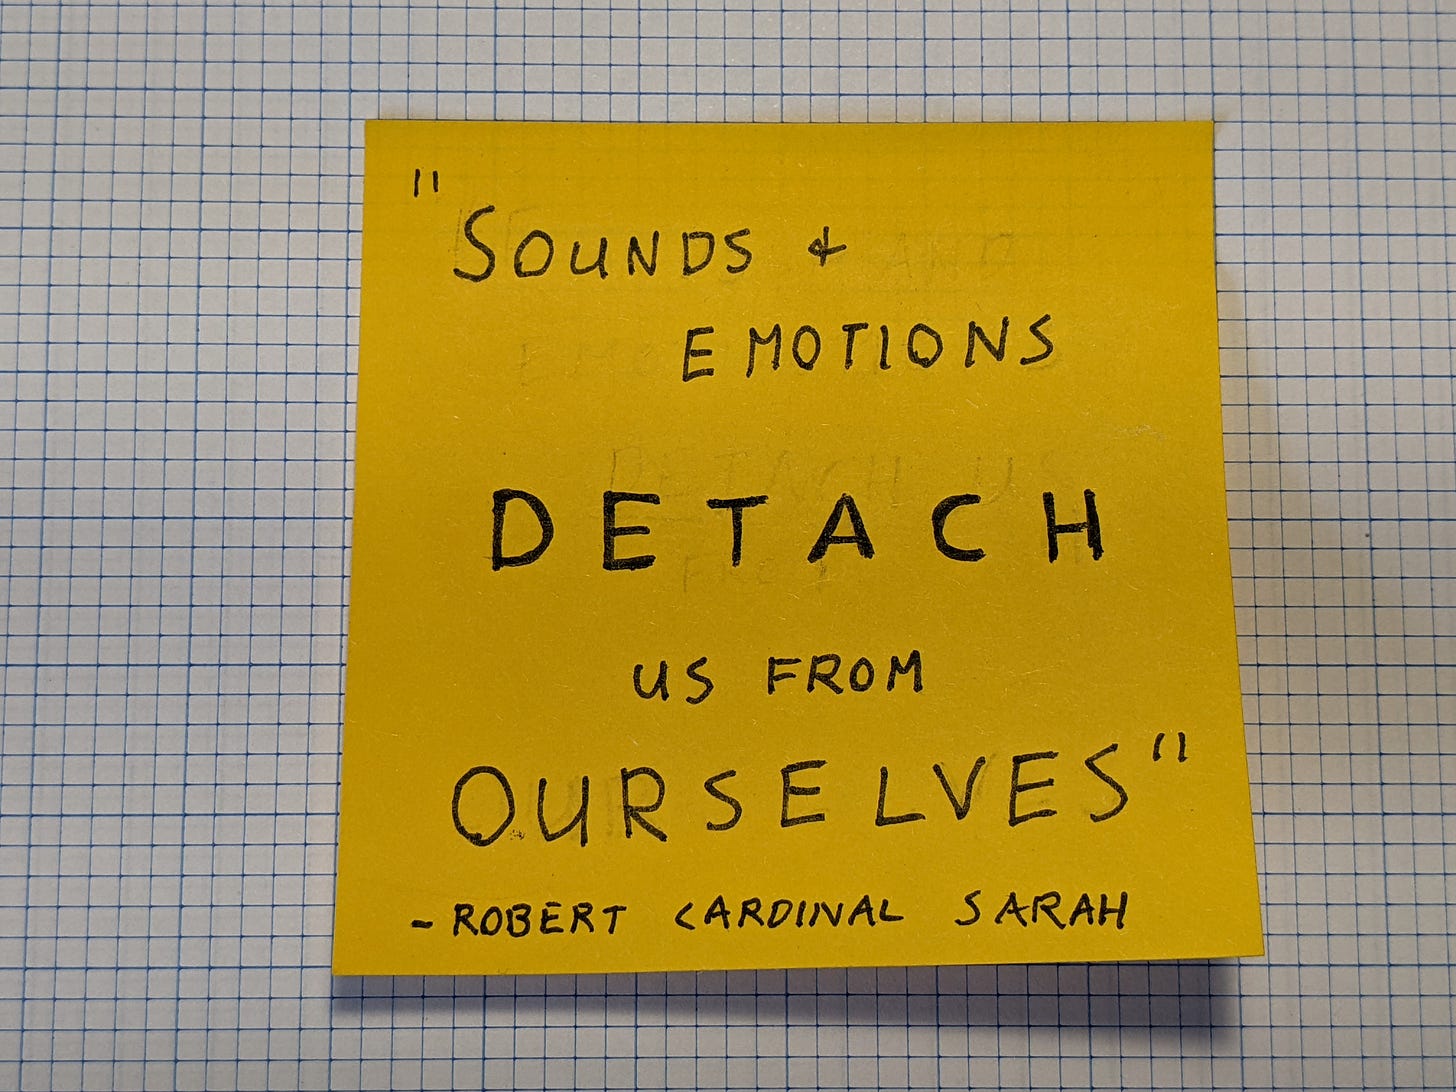 "SOUNDS +
EMOTIONS
DETACH
US FROM
OURSELVES"
- ROBERT CARDINAL SARAH